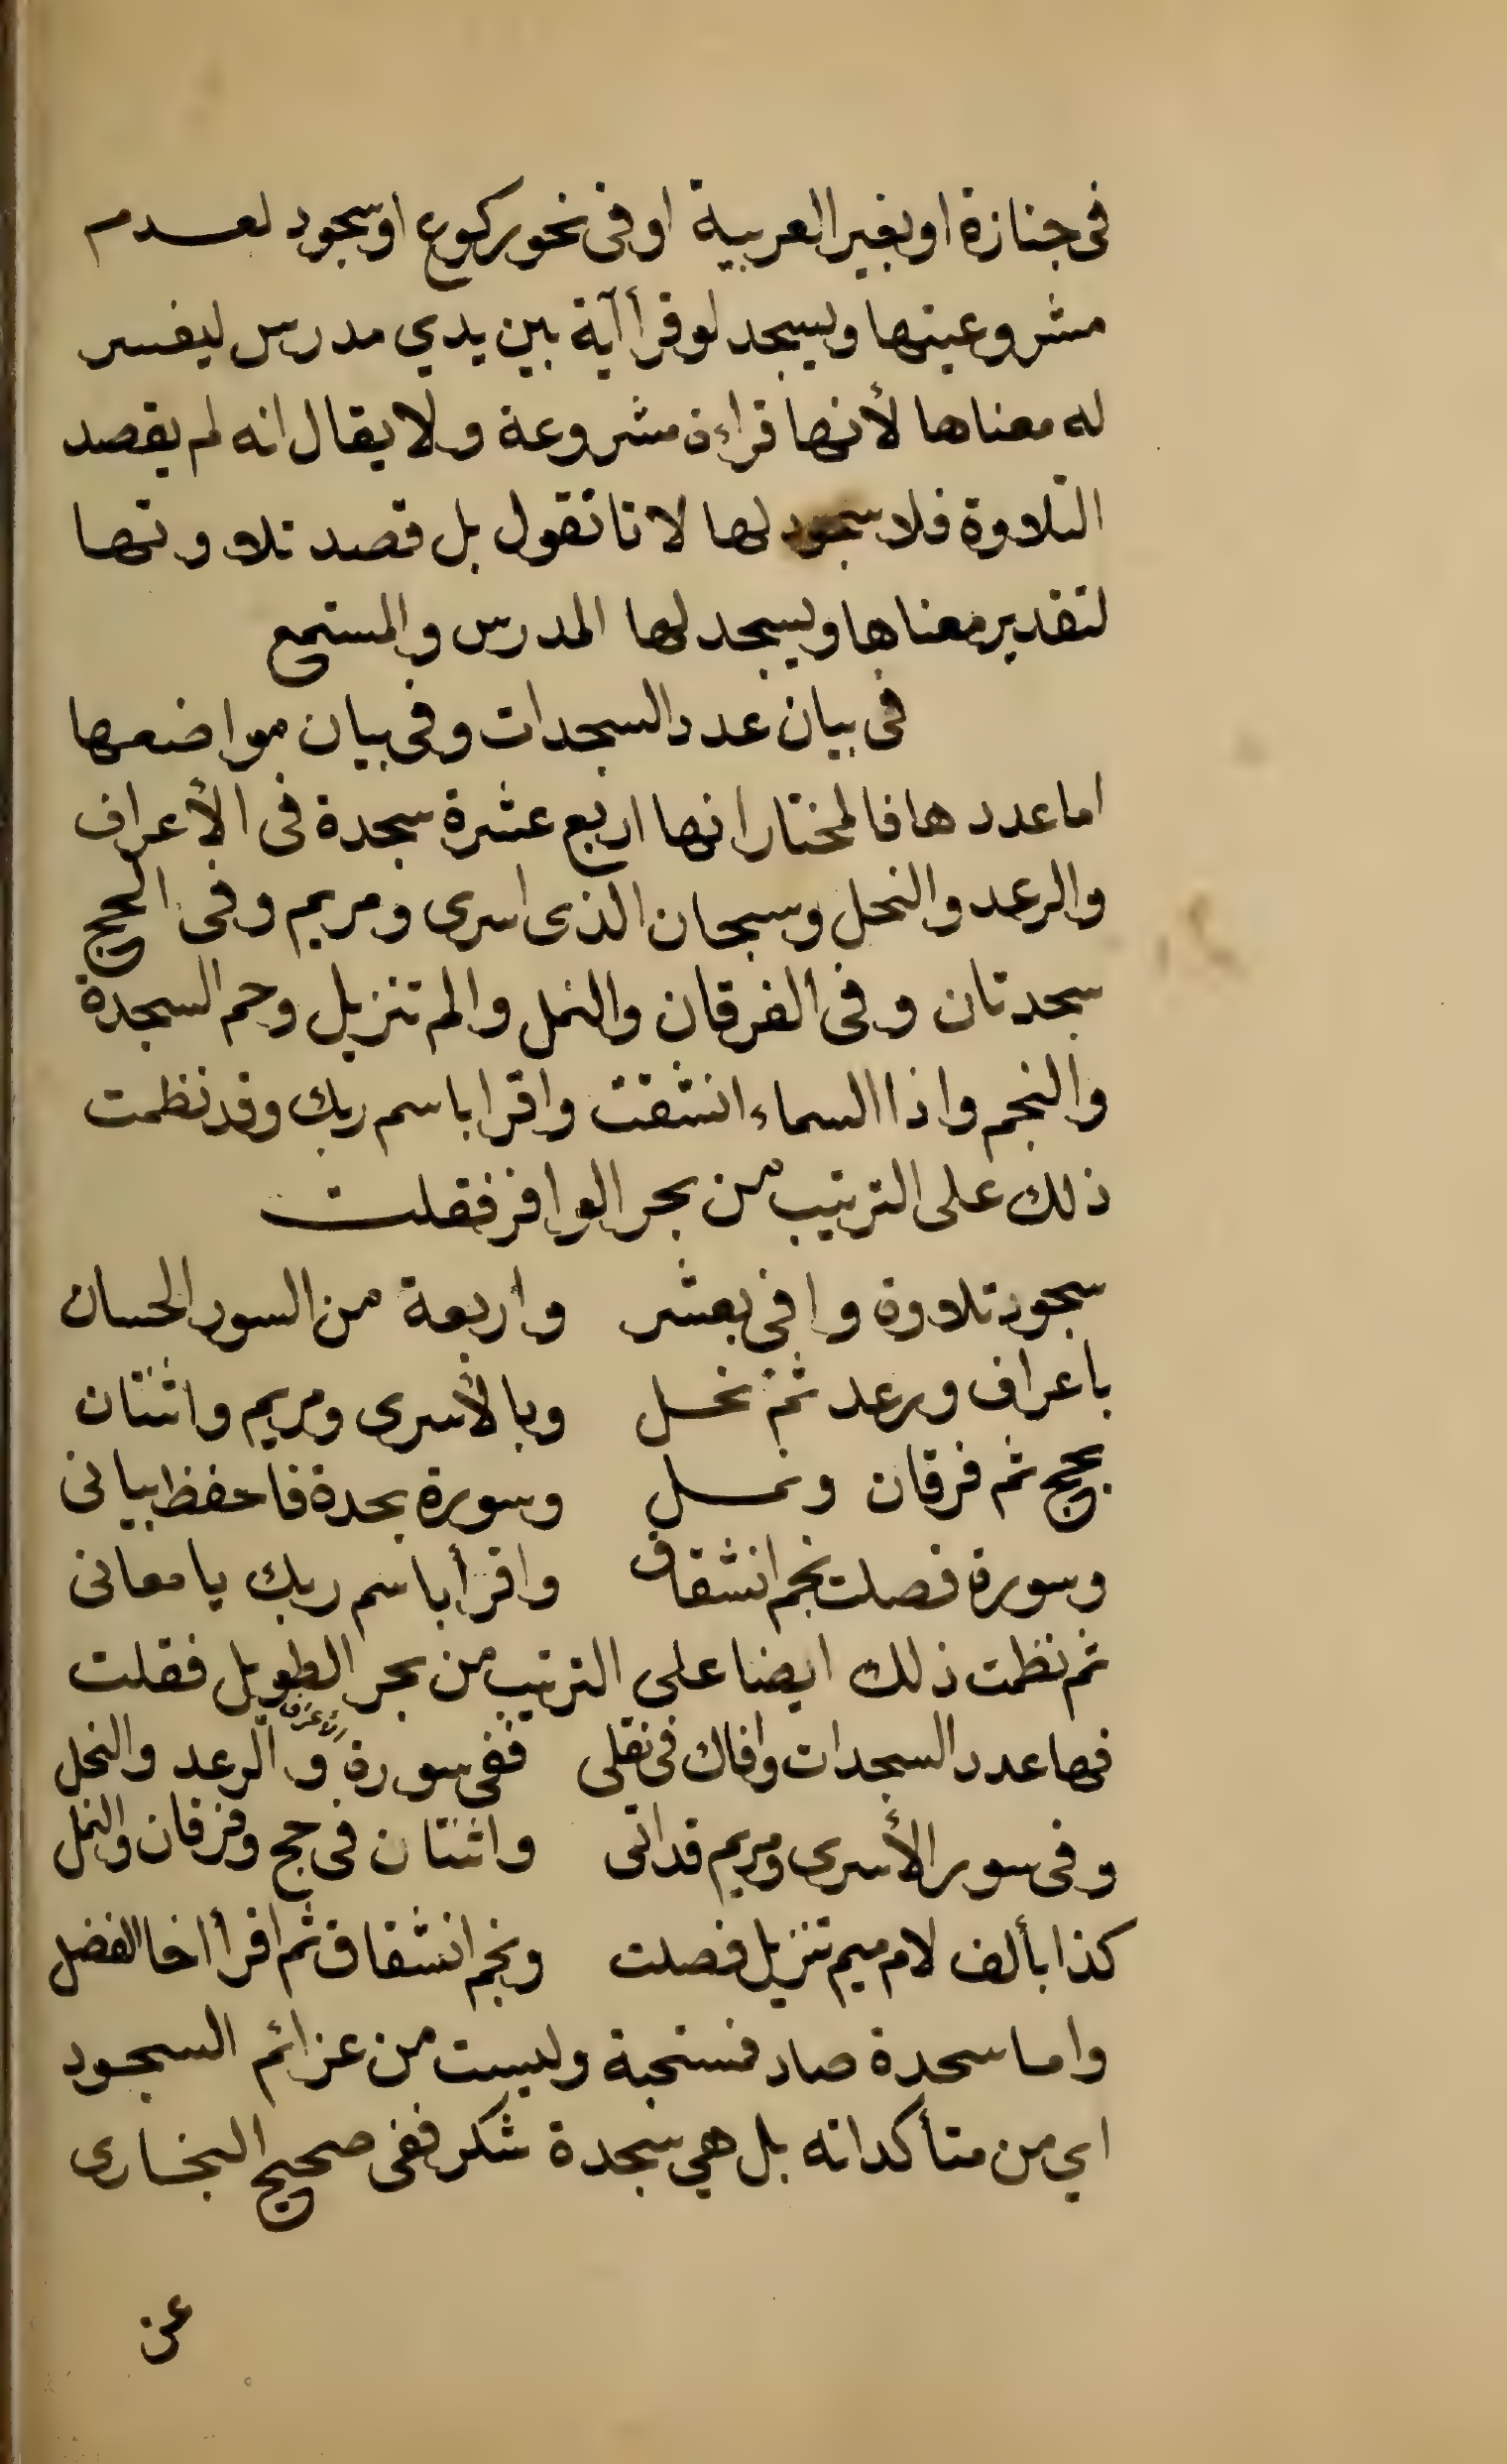 فى جنازة او بغير العربية او فى نحو ركوع او سجود لعدم
مشروعيتها ويسجد لو قرأ آية بين يدي مدرس ليفسر
له معناها لأنها قراءة مشروعة ولا يقال انه لم يقصد
التلاوة فلا سجود لها لانا نقول بل قصد تلاوتها
لتقدير معناها ويسجد لها المدرس والمستمع
فى بيان عدد السجدات وفى بيان مواضعها
اما عددها فالمختار انها اربع عشرة سجدة فى الأعراف
والرعد والنحل وسبحان الذى اسرى ومريم وفى الحج
سجدتان وفى الفرقان والنمل والم تنزيل وحم السجدة
والنجم واذا السماء انشقت واقرا باسم ربك وقد نظمت
ذلك على الترتيب من بحر الوافر فقلت
سجود تلاوة وافى بعشر واربعة من السور الحسان
باعراف ورعد ثم نحل وبالأسرى ومريم واثنتان
بحج ثم فرقان ونمل وسورة سجدة فاحفظ بيانى
وسورة فصلت نجم انشقاق واقرأ باسم ربك يا معانى
ثم نظمت ذلك ايضا على الترتيب من بحر الطويل فقلت
فها عدد السجدات وافاك فى نقلى ففى سورة الأعراف والرعد والنحل
وفى سور الأسرى ومريم قد اتى واثنتان فى حج وفرقان والنمل
كذا بألف لام ميم تنزيل فصلت ونجم انشقاق ثم اقرأ اخا الفضل
واما سجدة صاد فمستحبة وليست من عزائم السجود
اي من متأكداته بل هي سجدة شكر ففى صحيح البخارى
عن